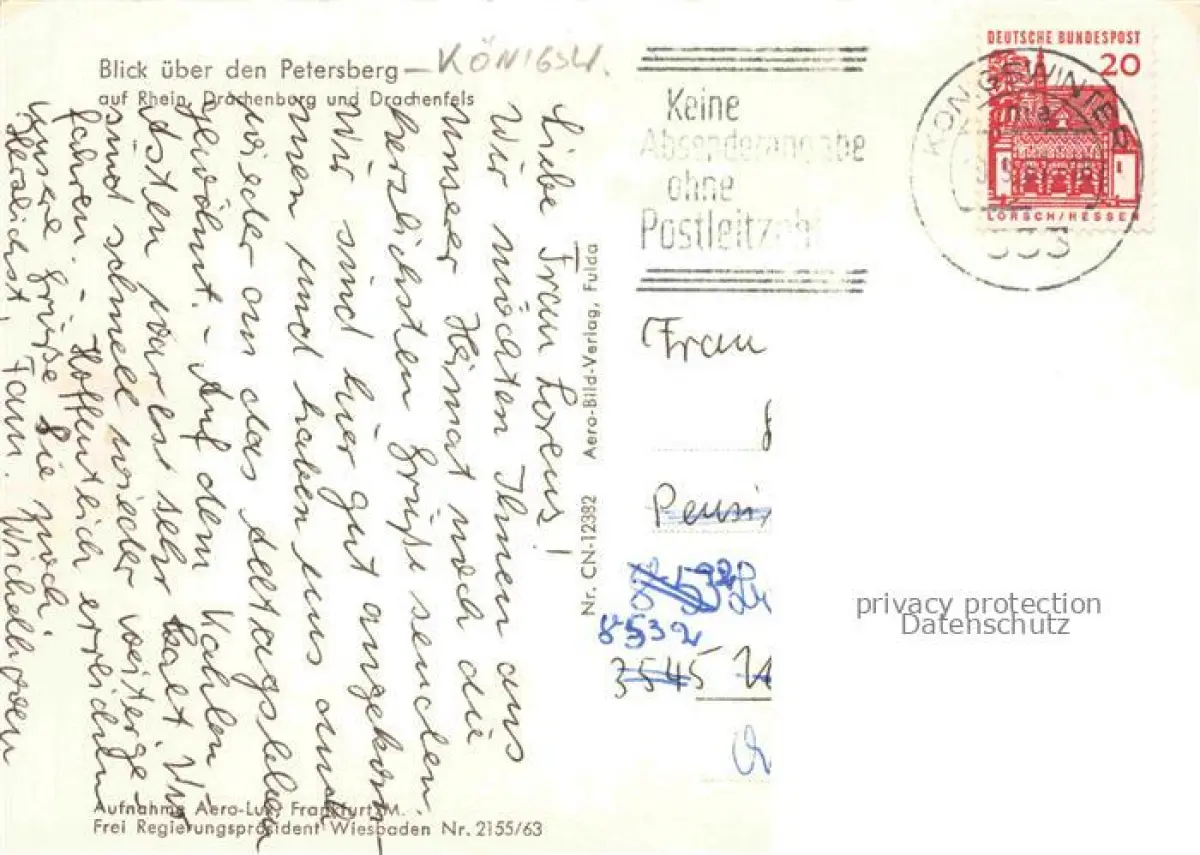 Blick über den Petersberg – KÖNIGSW.
auf Rhein, Drachenburg und Drachenfels
Liebe Frau Lorenz!
Wir möchten Ihnen aus
unserer Heimat noch die
herzlichsten Grüße senden.
Wir sind hier gut angekom-
men und haben uns auch
wieder an das Alltagsleben
gewöhnt. - Auf dem Kahlen
Asten war es sehr kalt. Wir
sind schnell wieder weiterge-
fahren. - Hoffentlich erreichen
unsere Grüße Sie noch.
Herzlichst, Fam. Wichelhoven
Aufnahme Aero-Lux, Frankfurt/M.
Frei Regierungspräsident Wiesbaden Nr. 2155/63
Nr. CN-12382 Aero-Bild-Verlag, Fulda
Keine
Absenderangabe
ohne
Postleitzahl
KÖNIGSWINTER
533
DEUTSCHE BUNDESPOST
20
LORSCH/HESSEN
Frau
Pensi
8532
8532
3545
privacy protection
Datenschutz